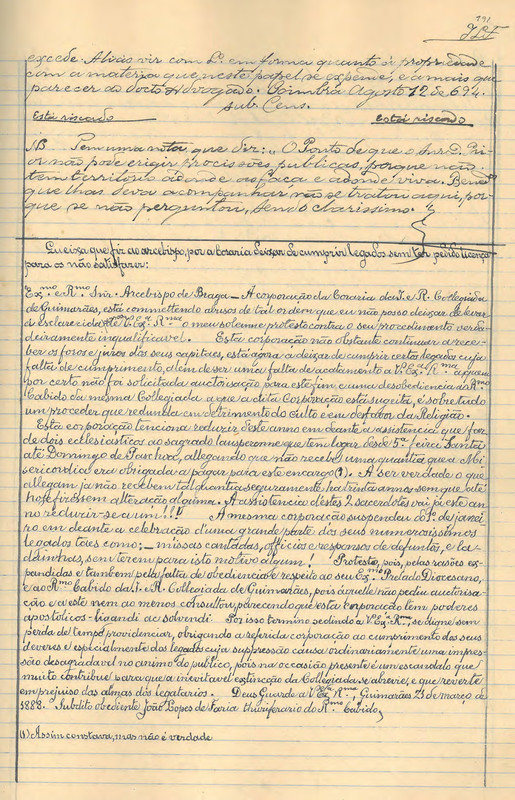 191
JLF
excede. Aliás vir com L.º em forma quanto á propriedade
com a materia que neste papel, se expõem, e a mais que
parecer ao docto Advogado. Coimbra Agosto 12 de 694.
sub Cens.
Está riscado Está riscado
NB Tem uma nota que diz: "O Ponto de que o Snr D. Pri-
or não pode erigir procissões publicas, porque não
tem territorio aonde as faça e aonde viva.
que lhas deva acompanhar não se tratou aqui, por-
que se não perguntou, sendo clarissimo."
Queixa que fiz ao arcebispo, por a Coraria deixar de cumprir legados sem ter pedido licença
para os não satisfazer:
Ex.mo e R.mo Snr. Arcebispo de Braga — A corporação da Coraria da I. e R. Collegiada
de Guimarães, está commettendo abusos de tal ordem que eu não posso deixar de levar
ao esclarecido de V.ª Ex.ª R.ma o meu solemne protesto contra o seu procedimento verda-
deiramente inqualificavel. Esta corporação não obstante continuar a rece-
ber os foros e juros dos seus capitaes, está agora a deixar de cumprir certos legados cuja
falta de cumprimento, alem de ser uma falta de acatamento a V.ª Ex.ª R.ma a quem
por certo não foi solicitada auctorisação para este fim, e uma desobediencia ao R.mo
Cabido da mesma Collegiada a que a dita Corporação está sugeita, é sobretudo
um proceder que redunda em detrimento do Culto e em desfavor da Religião.
Esta corporação tenciona reduzir este anno em deante a assistencia que faz
de dois ecclesiasticos ao sagrado lausperenne que tem lugar desde 5.ª feira Santa
até Domingo de Paschoa, allegando que não recebe uma quantia que a Mi-
sericordia era obrigada a pagar para este encargo (1). A ser verdade o que
allegam já não recebem tal quantia seguramente ha trinta annos sem que até
hoje fizessem alteração alguma. A assistencia destes 2 sacerdotes vai já este an-
no reduzir-se a um!!! A mesma corporação suspendeu do 1.º de janei-
ro em deante a celebração d'uma grande parte dos seus numerosissimos
legados taes como; — missas cantadas, officios e responsos de defuntos, e la-
dainhas, sem terem para isto motivo algum! Protesto, pois, pelas rasões ex-
pandidas e tambem pella falta de obediencia e respeito ao seu Ex.mo Prelado Diocesano,
e ao R.mo Cabido da I. R. Collegiada de Guimarães, pois áquelle não pediu auctorisa-
ção e a este nem ao menos consultou, parecendo que esta corporação tem poderes
apostolicos — ligandi ac solvendi Por isso termino pedindo a V.ª Ex.ª R.ma, se digne sem
perda de tempo providenciar, obrigando a referida corporação ao cumprimento dos seus
deveres e especialmente das legados cuja suppressão causa ordinariamente uma impres-
são desagradavel no animo do publico, pois na occasião presente é um escandalo que
muito contribue para que a inevitavel extincção da Collegiada se accelere, e que reverte
em prejuiso das almas dos legatarios. Deus Guarde a V.ª Ex.ª R.ma, Guimarães 23 de março de
1888. Subdito obediente João Lopes de Faria thuriferario do R.mo Cabido,
(1) Assim constava, mas não é verdade